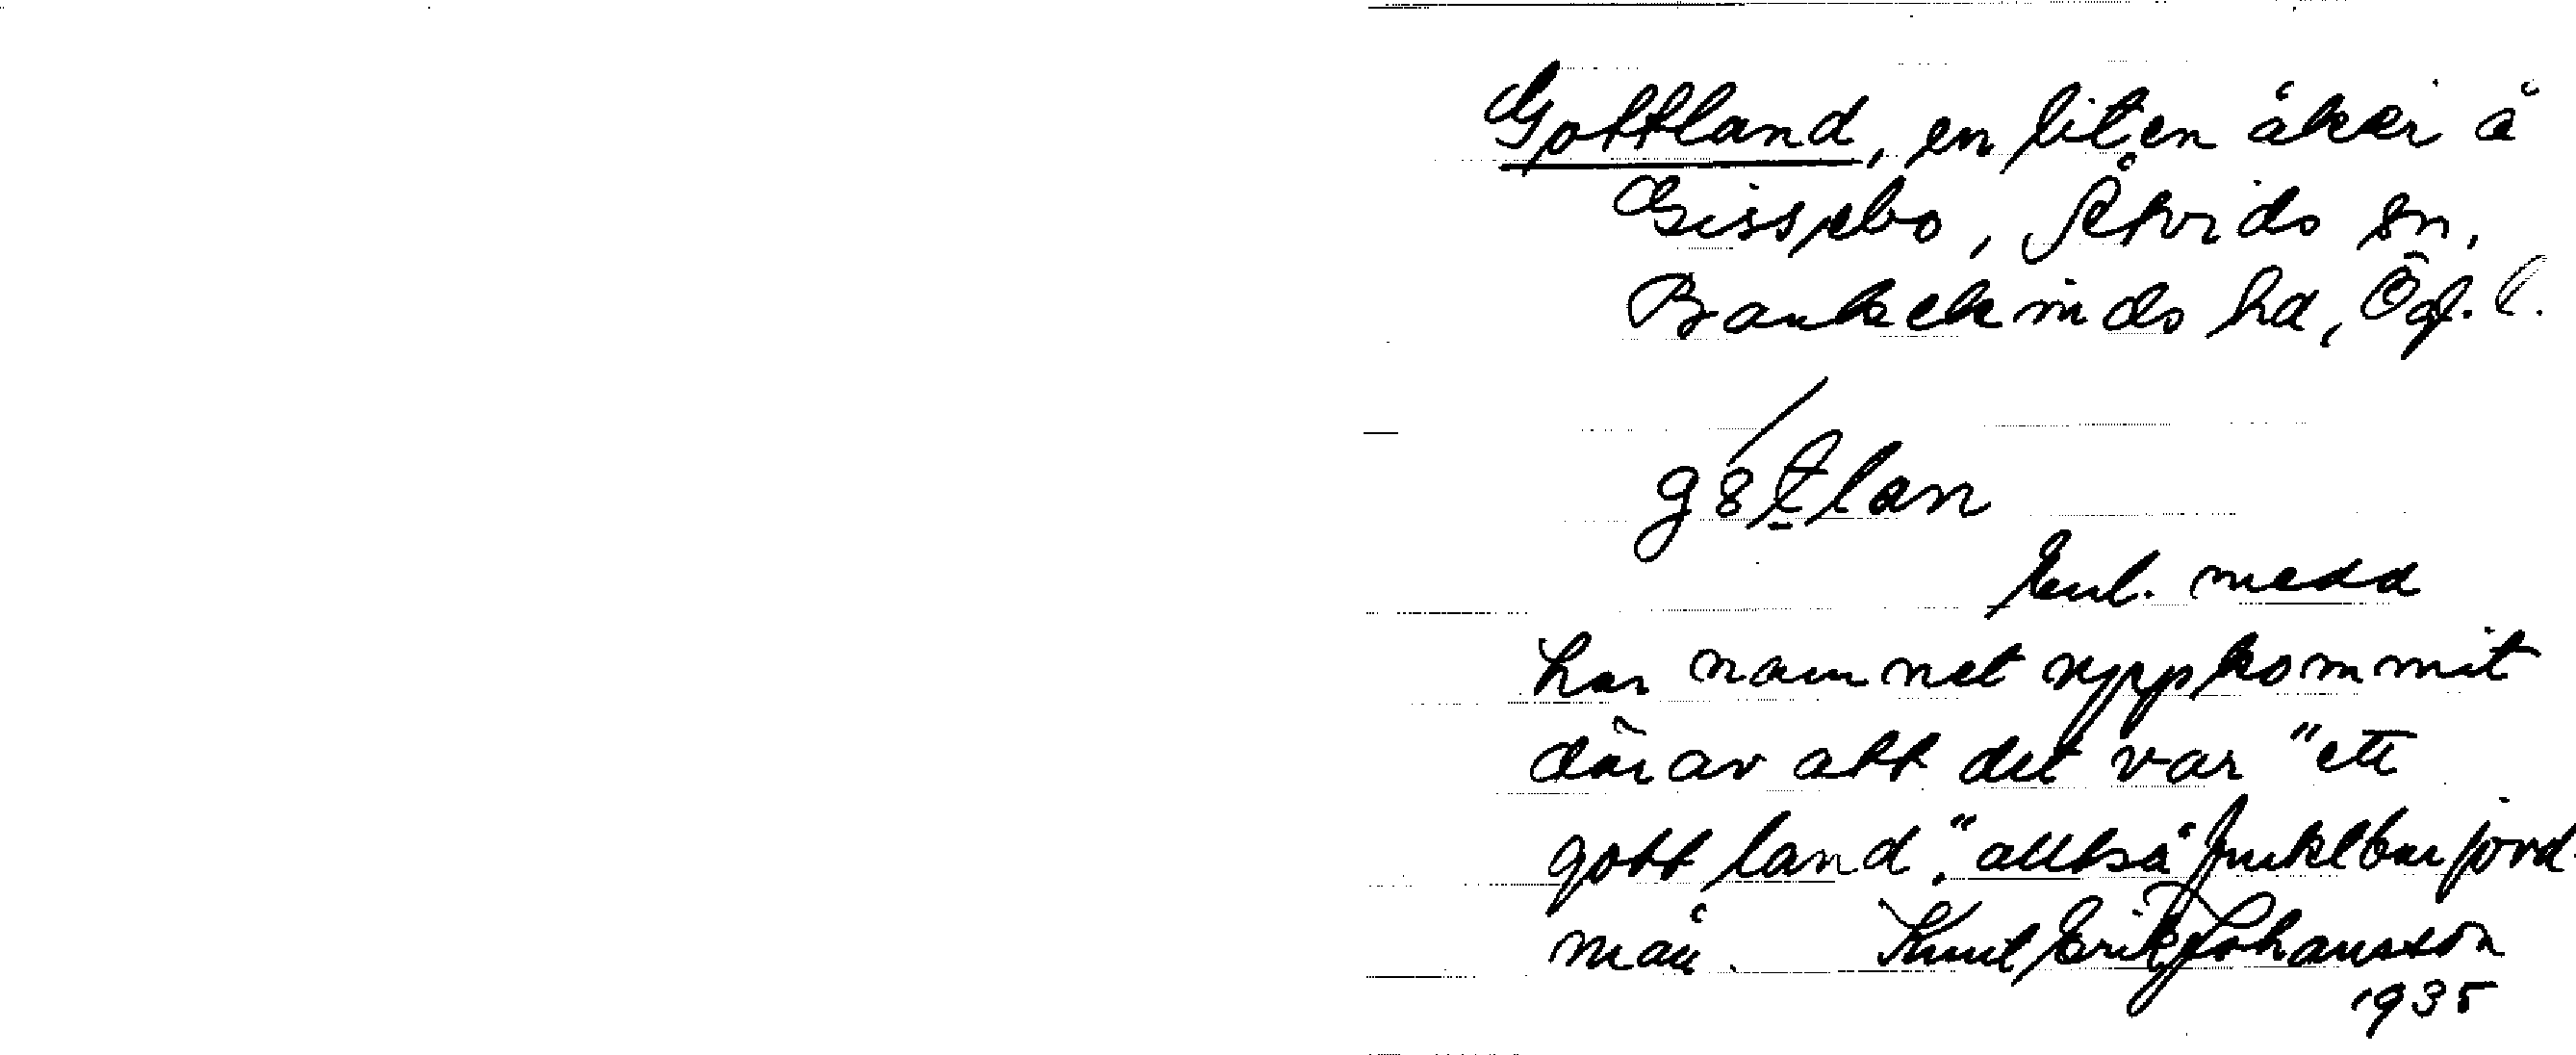 Gottland, en liten åker å
Gissebo, Åtvids sn,
Bankekinds hd, Ög. l.
g8tlan
Enl. medd
har namnet uppkommit
därav att det var "ett
gott land", alltså fruktbar jord-
mån. Knut Erik Johansson
1935